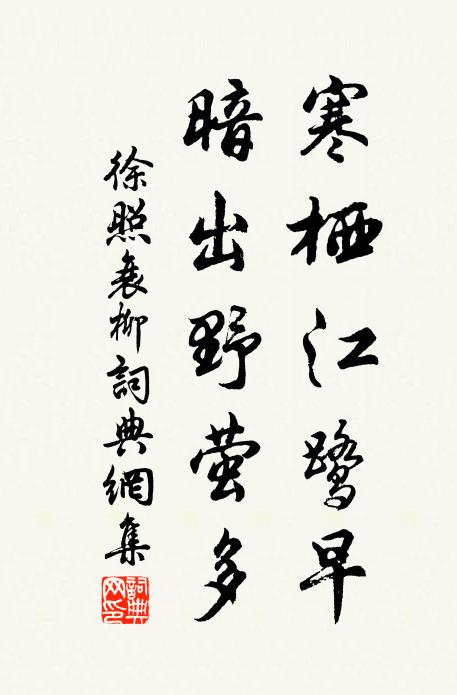 寒栖江鹭早
暗出野萤多
徐照衰柳詞典網集
詞典網印